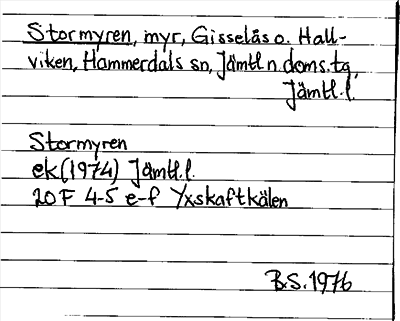 Stormyren, myr, Gisselås o. Hall-
viken, Hammerdals sn, Jämtl n. doms. tg,
Jämtl. l.
Stormyren
ek (1974) Jämtl. l.
20 F 4-5 e-f Yxskaftkälen
B.S. 1976